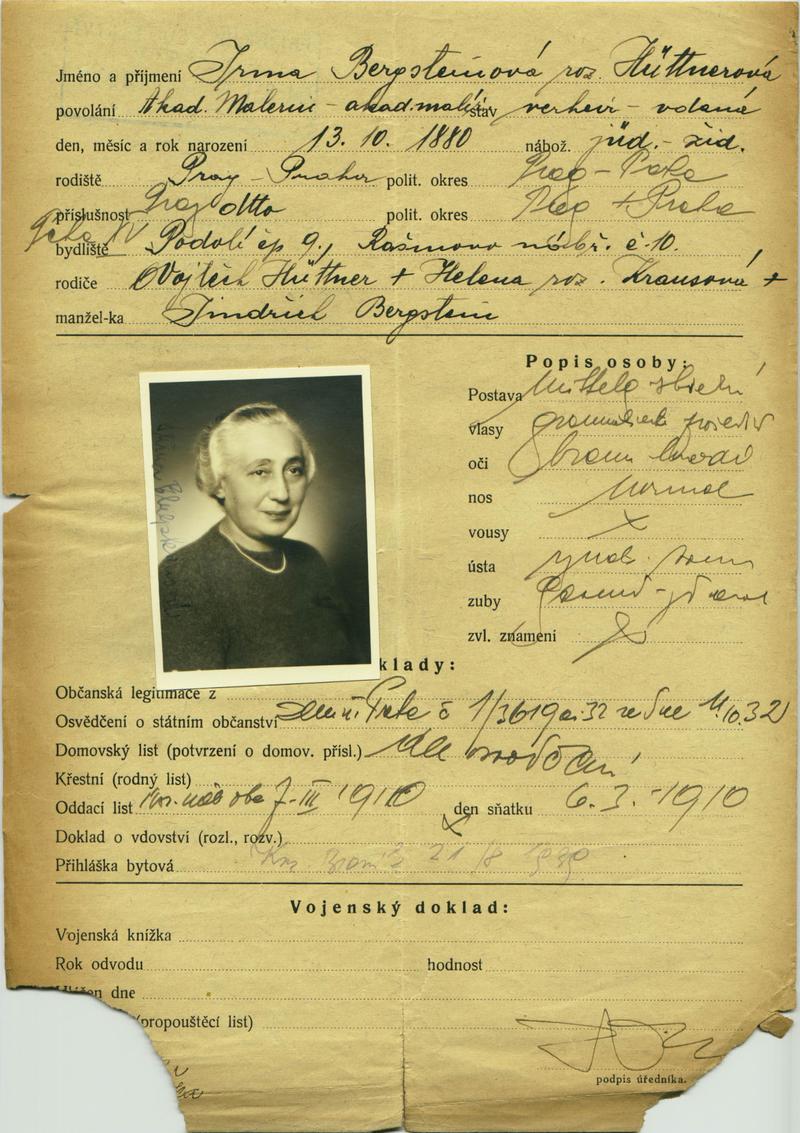 Jméno a příjmení Irma Bergsteinová roz. Hüttnerová
povolání Akad. Malerin - akad. malíř. stav verheir - vdaná
den, měsíc a rok narození 13. 10. 1880 nábož. jüd. - žid.
rodiště Prag - Praha polit. okres Prag - Praha
příslušnost Prag dtto polit. okres Prag + Praha
Praha XV
bydliště Podolí čp 9., Rašínovo nábř. č. 10.
rodiče Vojtěch Hüttner + Helena roz. Krausová +
manžel-ka Jindřich Bergstein
Popis osoby:
Postava Mittelg - střední
vlasy graumeliert
oči braun
nos Normal
vousy X
ústa
zuby Gesund - zdravé
zvl. znamení
klady:
Občanská legitimace z
Osvědčení o státním občanství č 1/3619 ai 32 ze dne 11.10.32
Domovský list (potvrzení o domov. přísl.)
Křestní (rodný list)
Oddací list 7-III 1910 den sňatku 6.3.-1910
Doklad o vdovství (rozl., rozv.) X
Přihláška bytová 21/8 1939
Vojenský doklad:
Vojenská knížka
Rok odvodu hodnost
dne
(propouštěcí list)
podpis úředníka.